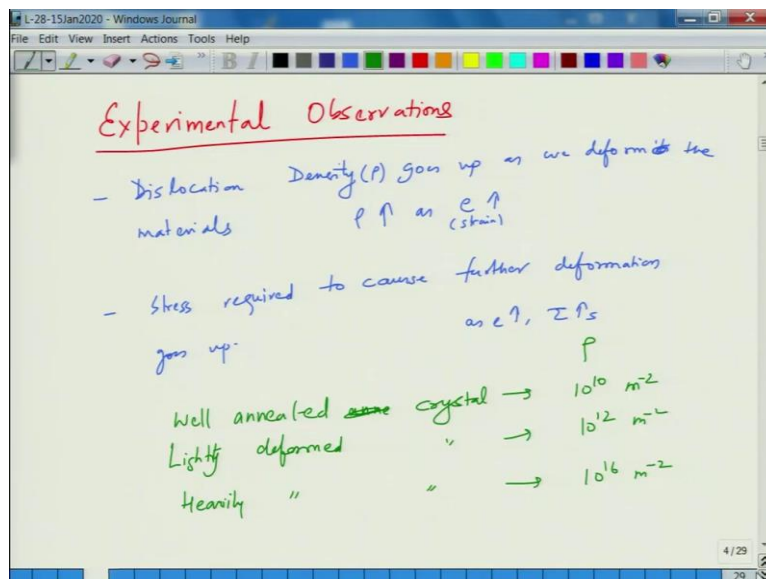 L-28-15Jan2020 - Windows Journal
File Edit View Insert Actions Tools Help
Experimental Observations
- Dislocation Density (ρ) goes up as we deform the
materials ρ ↑ as e ↑
(strain)
- Stress required to cause further deformation
goes up. as e ↑, τ ↑s
ρ
Well annealed crystal → 10¹⁰ m⁻²
Lightly deformed " → 10¹² m⁻²
Heavily " " → 10¹⁶ m⁻²
4/29
29